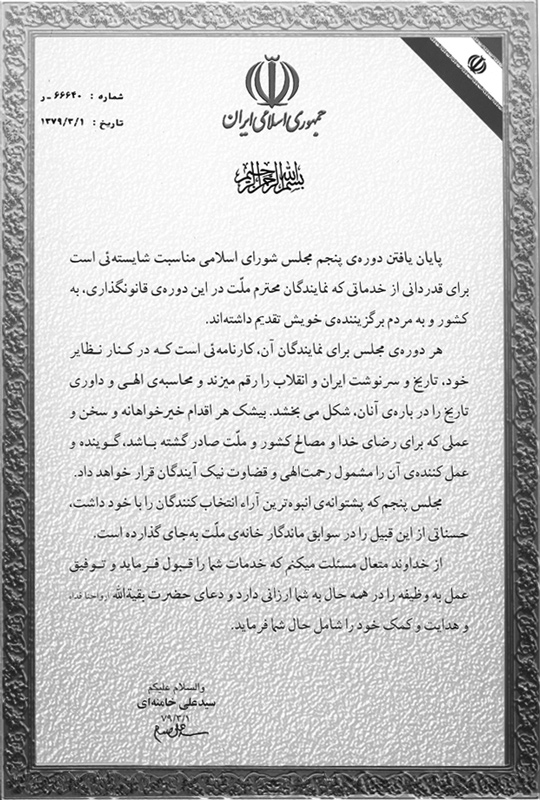 شماره : ۶۶۶۴۰ـر
تاریخ : ۱۳۷۹/۳/۱
جمهوری اسلامی ایران
بسم الله الرحمن الرحیم
پایان یافتن دوره‌ی پنجم مجلس شورای اسلامی مناسبت شایسته‌ئی است
برای قدردانی از خدماتی که نمایندگان محترم ملّت در این دوره‌ی قانونگذاری، به
کشور و به مردم برگزیننده‌ی خویش تقدیم داشته‌اند.
هر دوره‌ی مجلس برای نمایندگان آن، کارنامه‌ئی است که در کنار نظایر
خود، تاریخ و سرنوشت ایران و انقلاب را رقم میزند و محاسبه‌ی الهی و داوری
تاریخ را در باره‌ی آنان، شکل می بخشد. بیشک هر اقدام خیرخواهانه و سخن و
عملی که برای رضای خدا و مصالح کشور و ملّت صادر گشته باشد، گوینده و
عمل کننده‌ی آن را مشمول رحمت الهی و قضاوت نیک آیندگان قرار خواهد داد.
مجلس پنجم که پشتوانه‌ی انبوه‌ترین آراء انتخاب کنندگان را با خود داشت،
حسناتی از این قبیل را در سوابق ماندگار خانه‌ی ملّت به‌جای گذارده است.
از خداوند متعال مسئلت میکنم که خدمات شما را قبول فرماید و توفیق
عمل به وظیفه را در همه حال به شما ارزانی دارد و دعای حضرت بقیةالله ارواحنا فداه
و هدایت و کمک خود را شامل حال شما فرماید.
والسلام علیکم
سیدعلی خامنه‌ای
۷۹/۳/۱